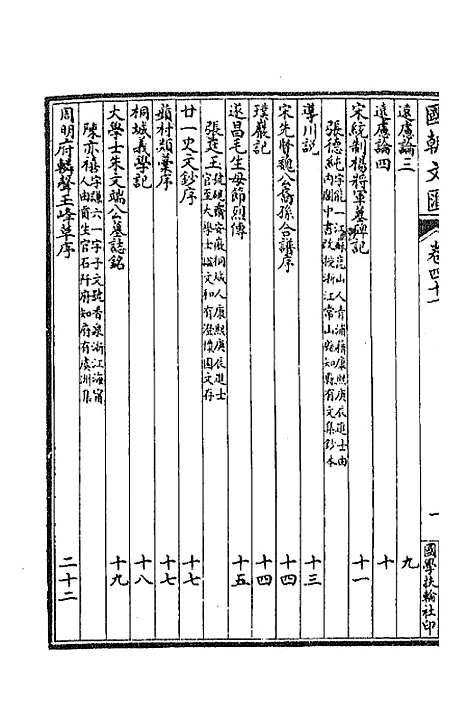 國朝文匯 卷四十一 一 國學扶輪社印
遠慮論三 九
遠慮論四 十
宋統制楊將軍墓碑記 十一
張德純字能一江蘇崑山人青浦籍康熙庚辰進士由
內閣中書改授浙江常山縣知縣有文集鈔本
導川說 十三
宋先賢魏公裔孫合譜序 十四
璞巖記 十四
遂昌毛生母節烈傳 十五
張廷玉字硯齋安徽桐城人康熙庚辰進士
官至大學士諡文和有澄懷園文存
廿一史文鈔序 十七
蘋村類藁序 十七
桐城義學記 十八
大學士朱文端公墓誌銘 十九
陳亦禧字謙六一字子文號香泉浙江海甯
人由貢生官石阡府知府有虞洲集
周明府轔聲玉峰草序 二十二